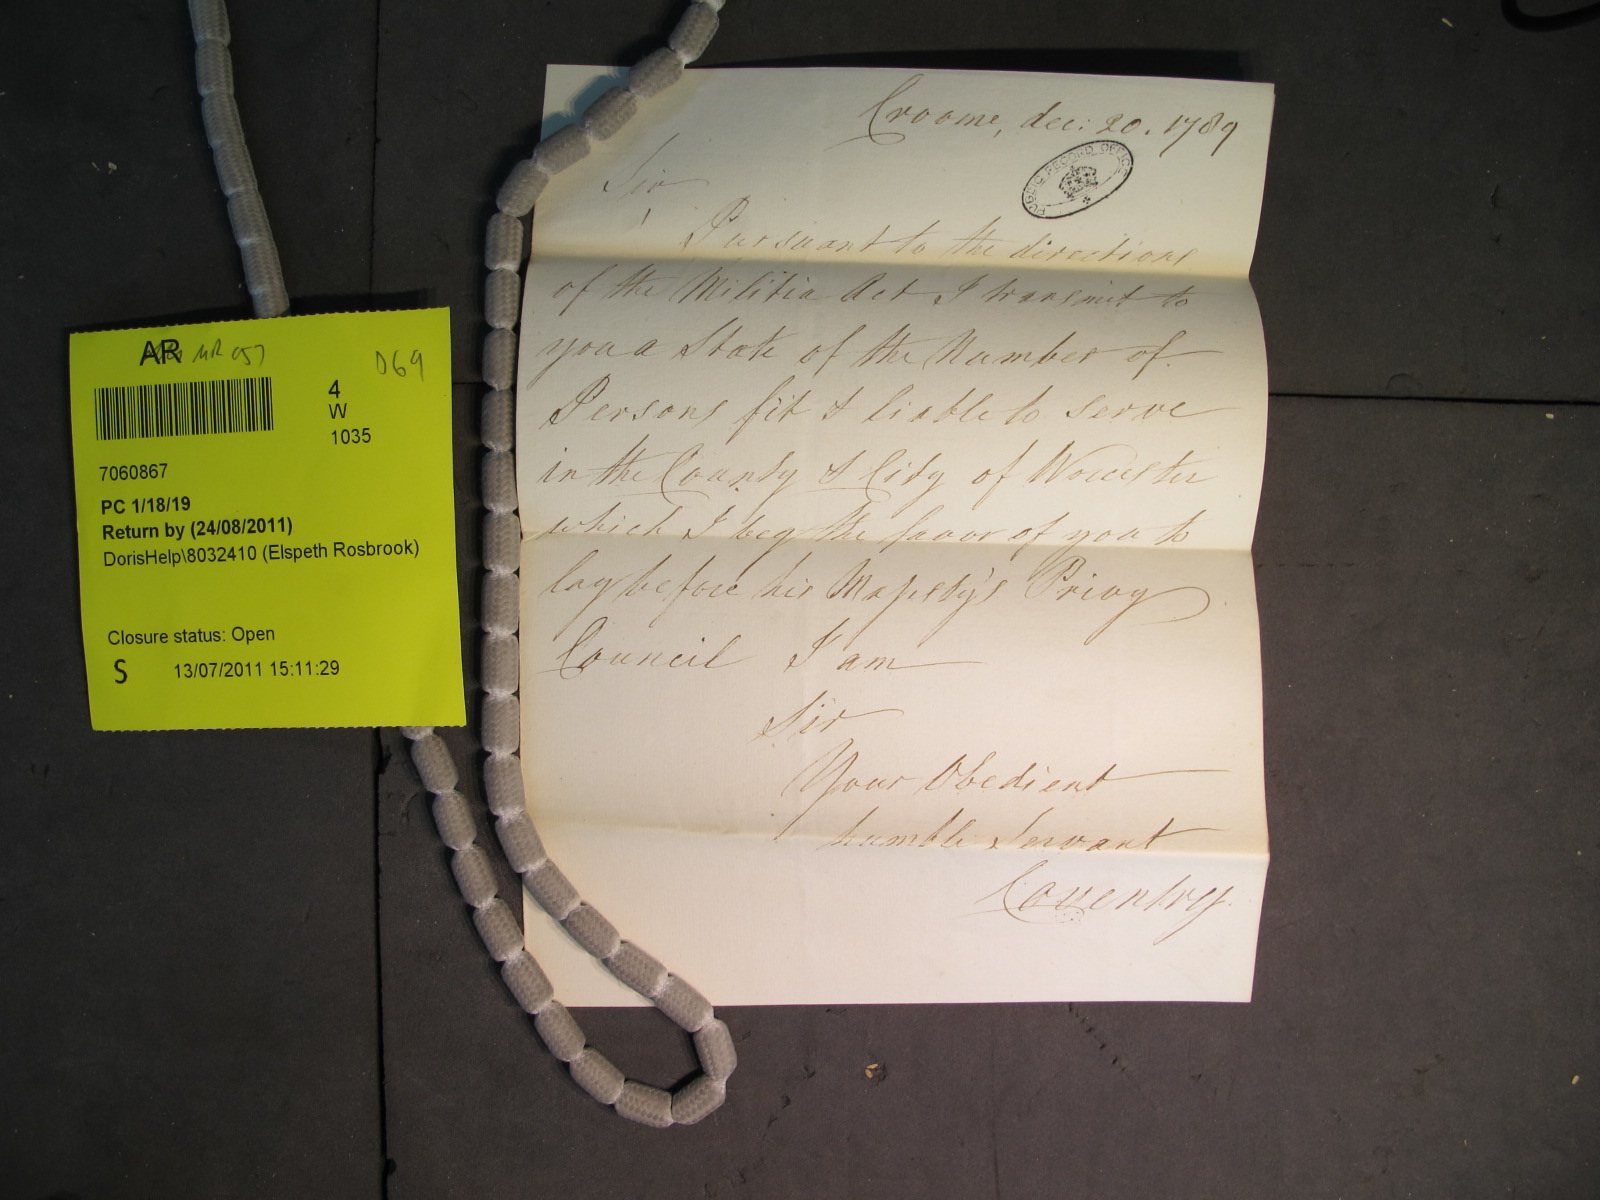 AR
MR 057
D69
4
W
1035
7060867
PC 1/18/19
Return by (24/08/2011)
DorisHelp\8032410 (Elspeth Rosbrook)
Closure status: Open
S 13/07/2011 15:11:29
Croome, dec: 20. 1789
PUBLIC RECORD OFFICE
Sir
Pursuant to the directions
of the Militia Act I transmit to
you a State of the Number of
Persons fit & liable to serve
in the County & City of Worcester
which I beg the favor of you to
lay before his Majesty's Privy
Council I am
Sir
Your Obedient
humble Servant
Coventry.